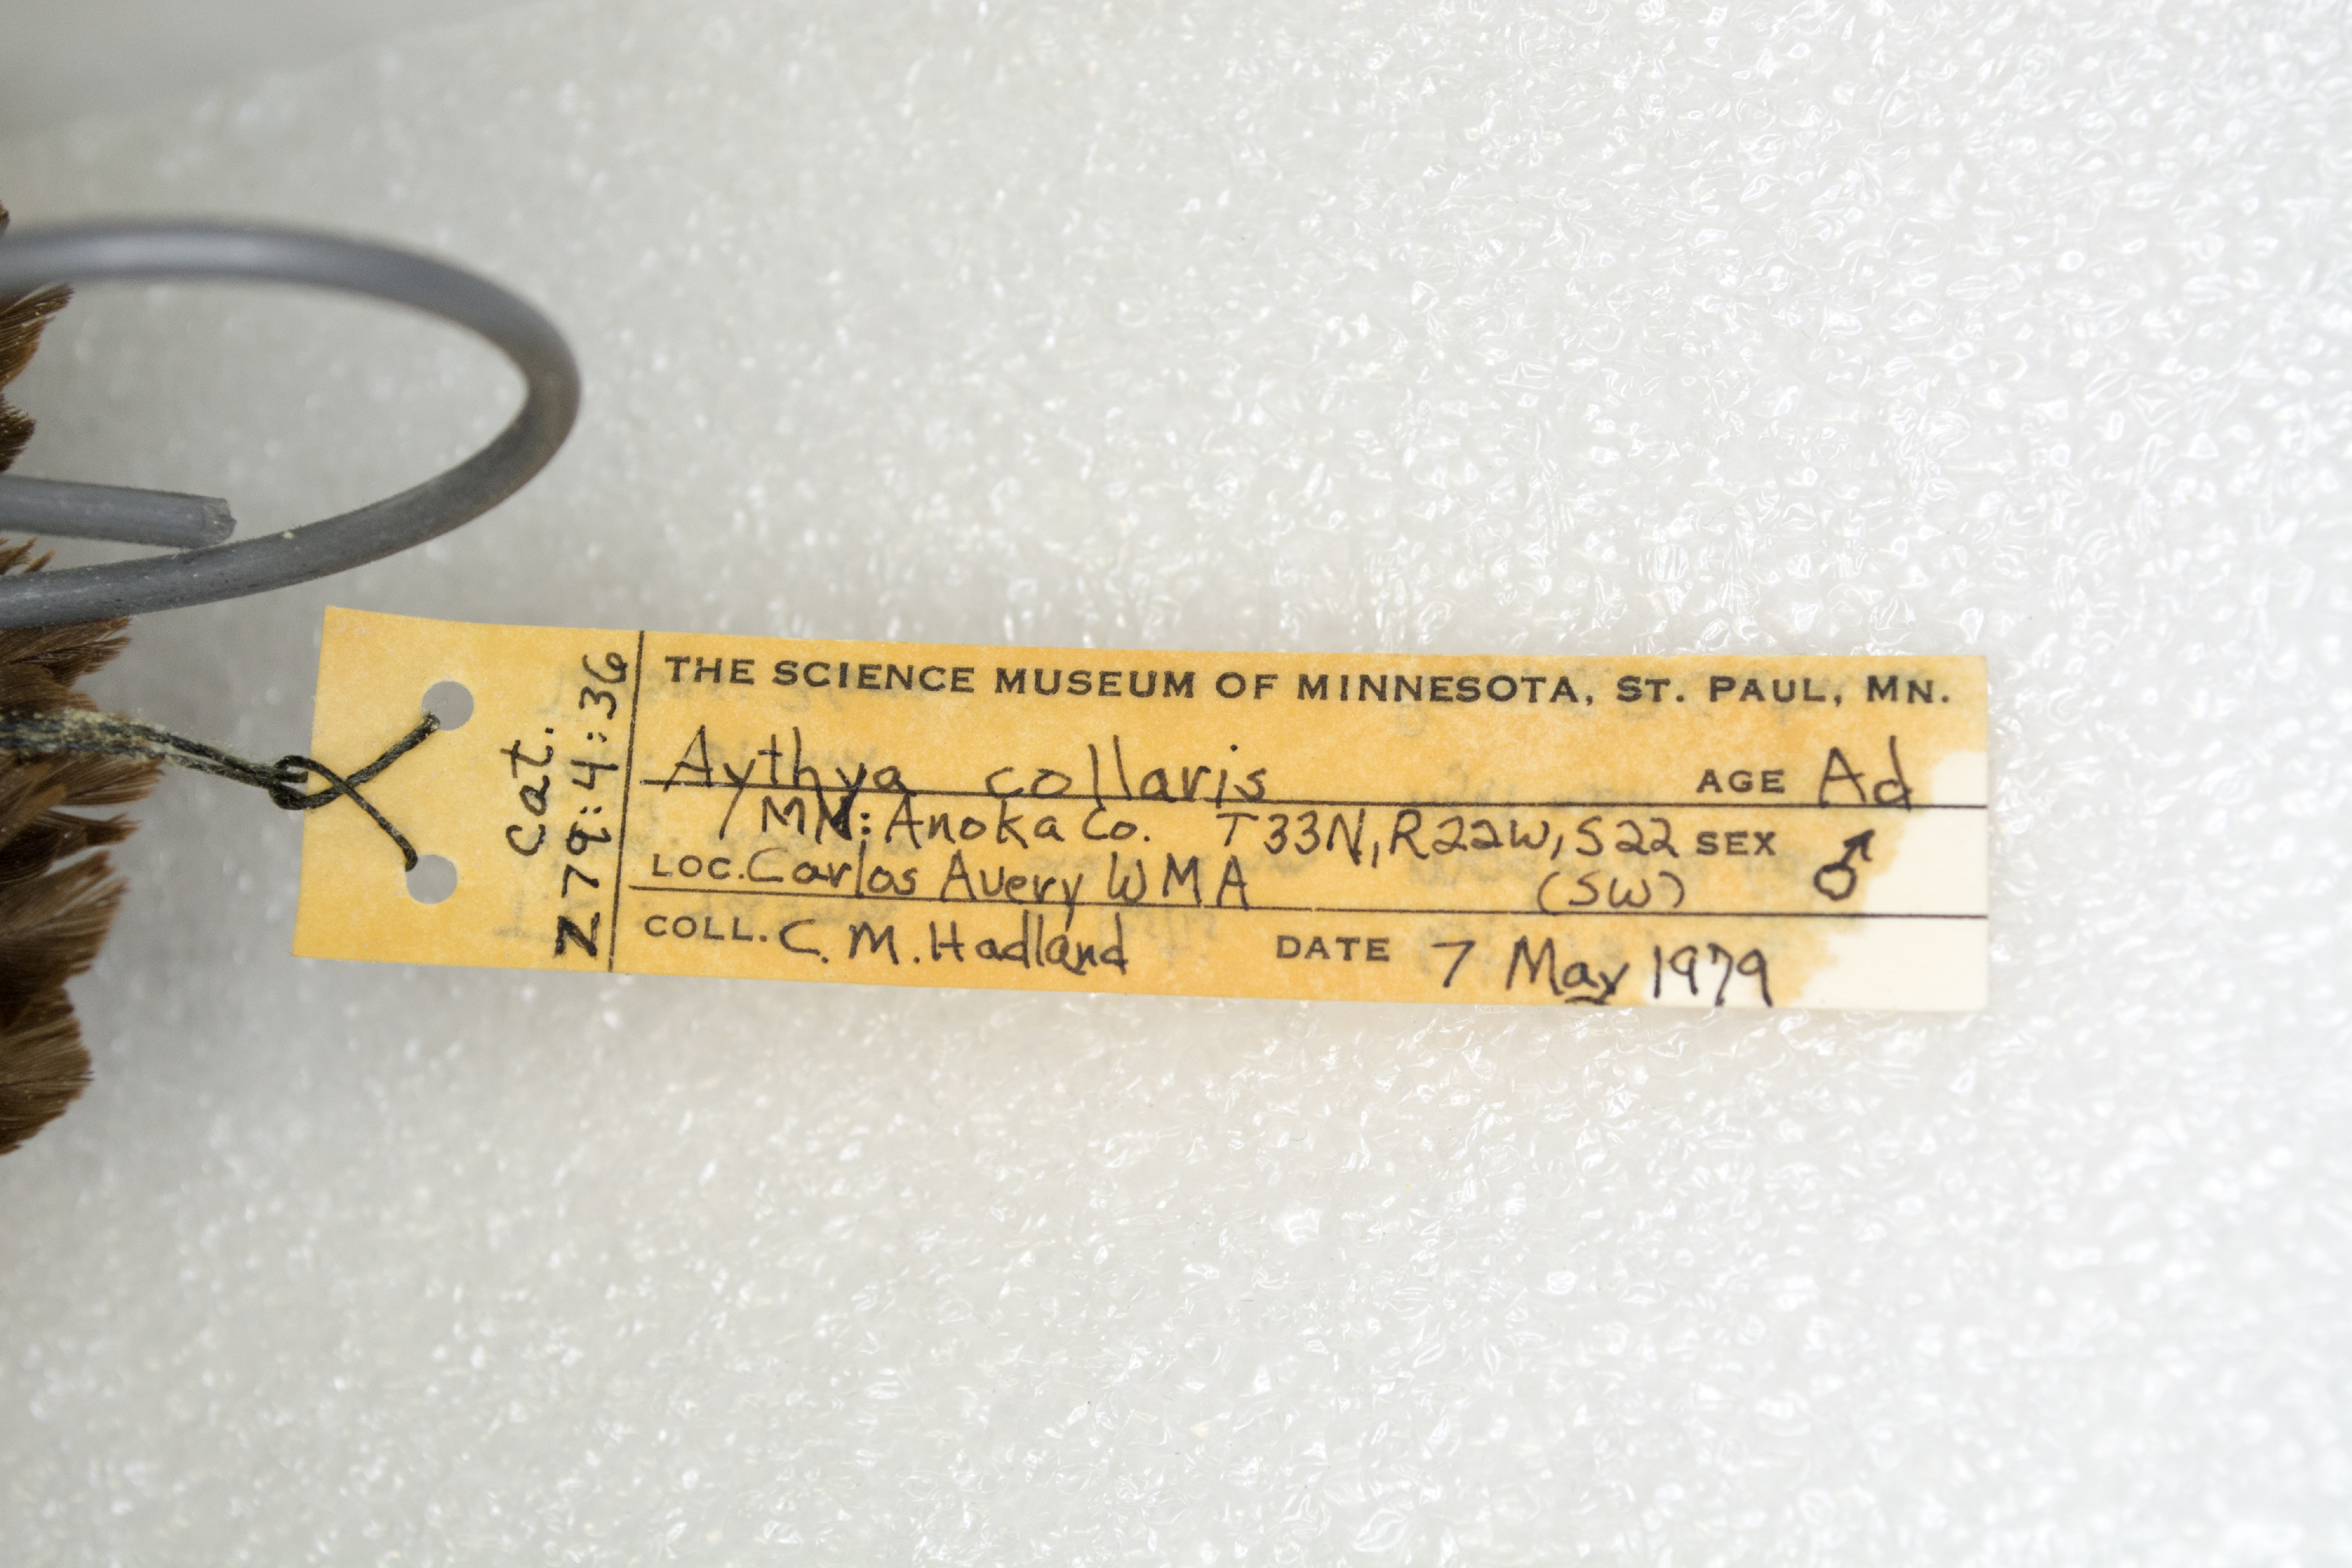 Cat.
Z79:4:36
THE SCIENCE MUSEUM OF MINNESOTA, ST. PAUL, MN.
Aythya collaris AGE Ad
MN: Anoka Co. T33N, R22W, S22 SEX ♂
LOC. Carlos Avery WMA (SW)
COLL. C. M. Hadland DATE 7 May 1979